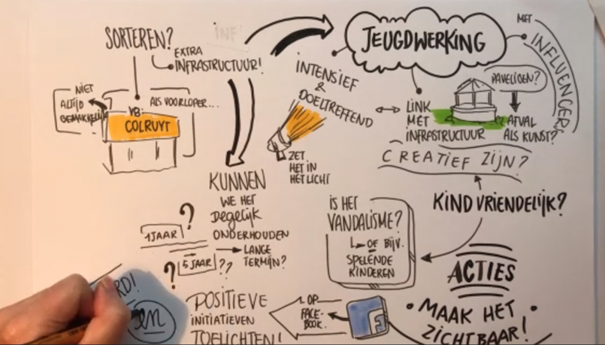 SORTEREN?
EXTRA
INFRASTRUCTUUR!
NIET
ALTIJD
GEMAKKELIJK
VB:
ALS VOORLOPER...
COLRUYT
INTENSIEF
&
DOELTREFFEND
ZET
HET IN
HET LICHT
JEUGDWERKING
MET
INFLUENCER!
LINK
MET
INFRASTRUCTUUR
PAVELJOEN?
AFVAL
ALS KUNST?
CREATIEF ZIJN?
KINDVRIENDELIJK?
KUNNEN
WE HET
DEGELIJK
ONDERHOUDEN
1 JAAR?
LANGE
TERMIJN?
? 5 JAAR??
IS HET
VANDALISME?
OF BIJV.
SPELENDE
KINDEREN
ACTIES
MAAK HET
ZICHTBAAR!
OP
FACE-
BOOK.
f
POSITIEVE
INITIATIEVEN
TOELICHTEN!